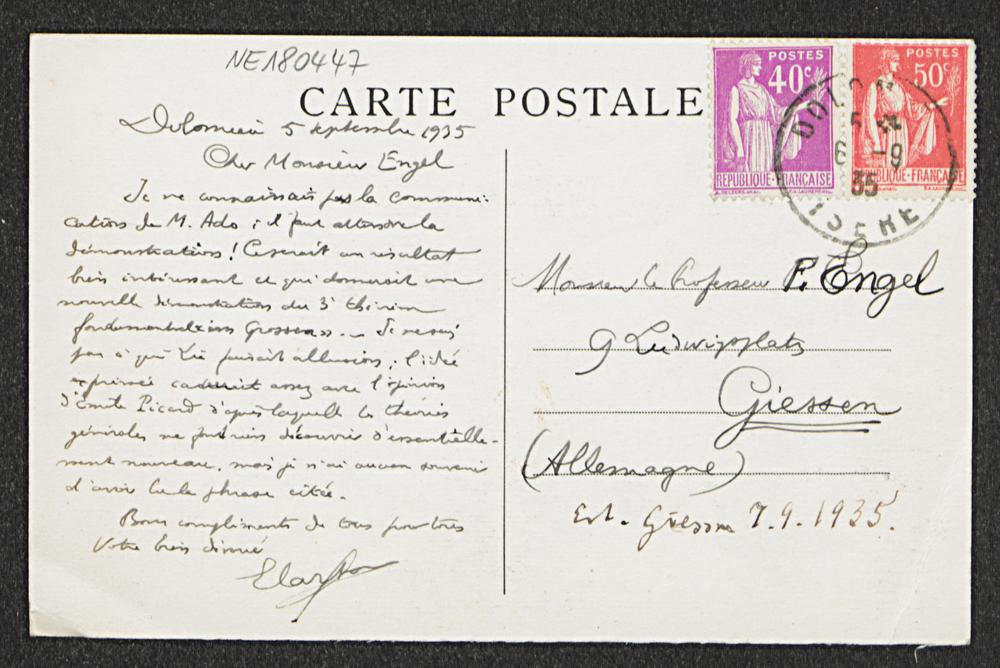 NE180447
CARTE POSTALE
Dolomieu 5 septembre 1935
Cher Monsieur Engel
Je ne connaissais pas la communi-
cation de M. Ado ; il faut attendre la
démonstration ! Ce serait un résultat
bien intéressant ce qui donnerait une
nouvelle démonstration du 3e théorème
fondamental Je ne sais
pas à quoi Lie faisait allusion ; l'idée
exprimée cadrerait assez avec l'opinion
d'Emile Picard d'après laquelle les théories
générales ne font rien découvrir d'essentielle-
ment nouveau, mais je n'ai aucun souvenir
d'avoir lu la phrase citée.
Bons compliments de tous pour tous
Votre bien dévoué
E Cartan
POSTES
40c
REPUBLIQUE FRANÇAISE
POSTES
50c
REPUBLIQUE FRANÇAISE
6 -9
35
ISERE
Monsieur le Professeur F. Engel
9 Ludwigsplatz
Giessen
(Allemagne)
Erh. Giessen 7.9.1935.